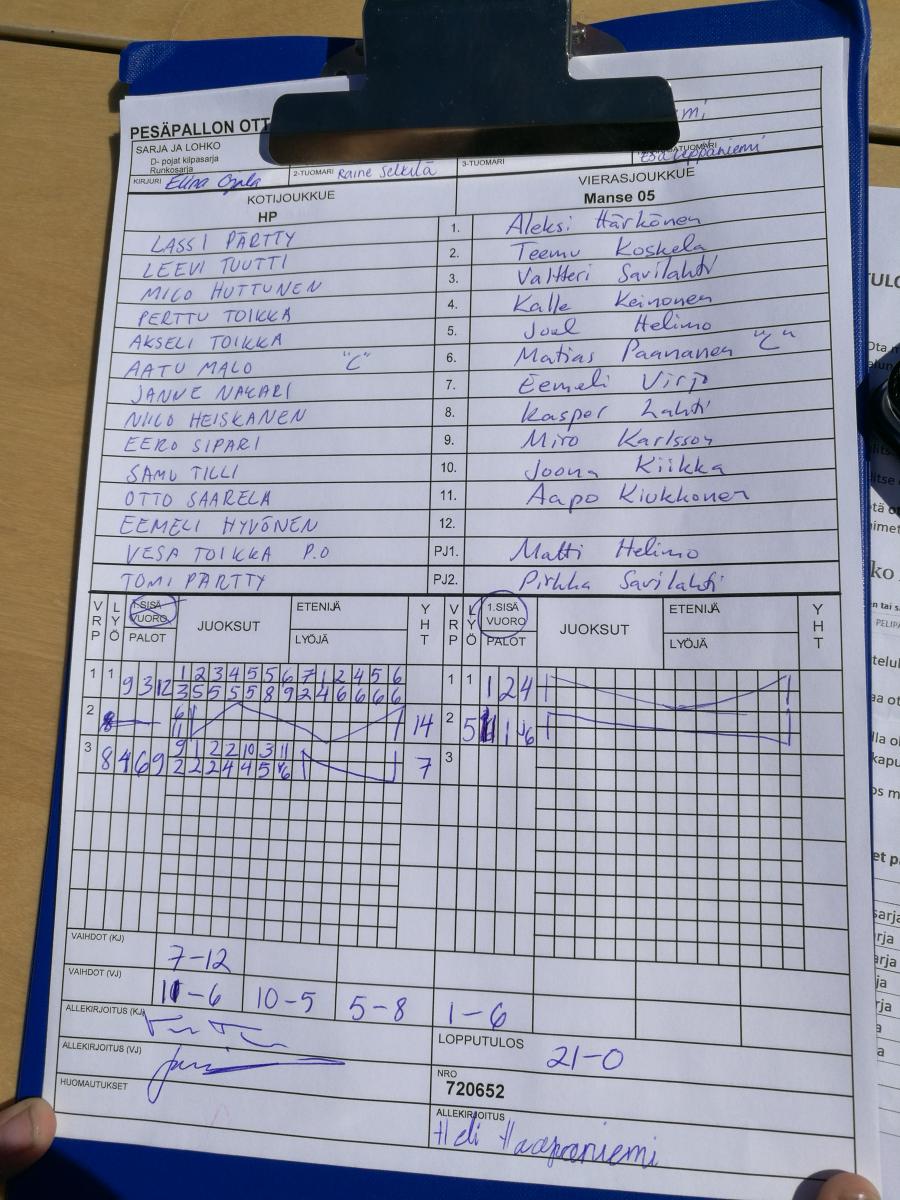 PESÄPALLON OTT
SARJA JA LOHKO
D- pojat kilpasarja
Runkosarja
KIRJURI Elina Ojala 2-TUOMARI Raine Selkilä 3-TUOMARI
KOTIJOUKKUE VIERASJOUKKUE
HP Manse 05
LASSI PÄRTTY 1. Aleksi Härkönen
LEEVI TUUTTI 2. Teemu Koskela
MILO HUTTUNEN 3. Valtteri Savilahti
PERTTU TOIKKA 4. Kalle Keinonen
AKSELI TOIKKA 5. Joel Helimo
AATU MALO "C" 6. Matias Paananen "C"
JANNE NAKARI 7. Eemeli Virjo
NIILO HEISKANEN 8. Kasper Lahti
EERO SIPARI 9. Miro Karlsson
SAMU TILLI 10. Joona Kiikka
OTTO SAARELA 11. Aapo Kiukkonen
EEMELI HYVÖNEN 12.
VESA TOIKKA P.O PJ1. Matti Helimo
TOMI PÄRTTY PJ2. Pirkka Savilahti
VRP LYÖ 1.SISÄ VUORO PALOT JUOKSUT ETENIJÄ LYÖJÄ YHT VRP LYÖ 1.SISÄ VUORO PALOT JUOKSUT ETENIJÄ LYÖJÄ YHT
1 1 9 3 12 1 2 3 4 5 5 6 7 1 2 4 5 6 1 1 1 2 4
3 5 5 5 5 8 9 2 4 6 6 6 6
2 8 6 14 2 5 1 6
11
3 8 4 6 9 9 1 2 2 10 3 11 7 3
2 2 2 4 4 5 6
VAIHDOT (KJ) 7-12
VAIHDOT (VJ) 11-6 10-5 5-8 1-6
ALLEKIRJOITUS (KJ)
LOPPUTULOS 21-0
ALLEKIRJOITUS (VJ)
NRO
720652
HUOMAUTUKSET
ALLEKIRJOITUS
Heli Haapaniemi